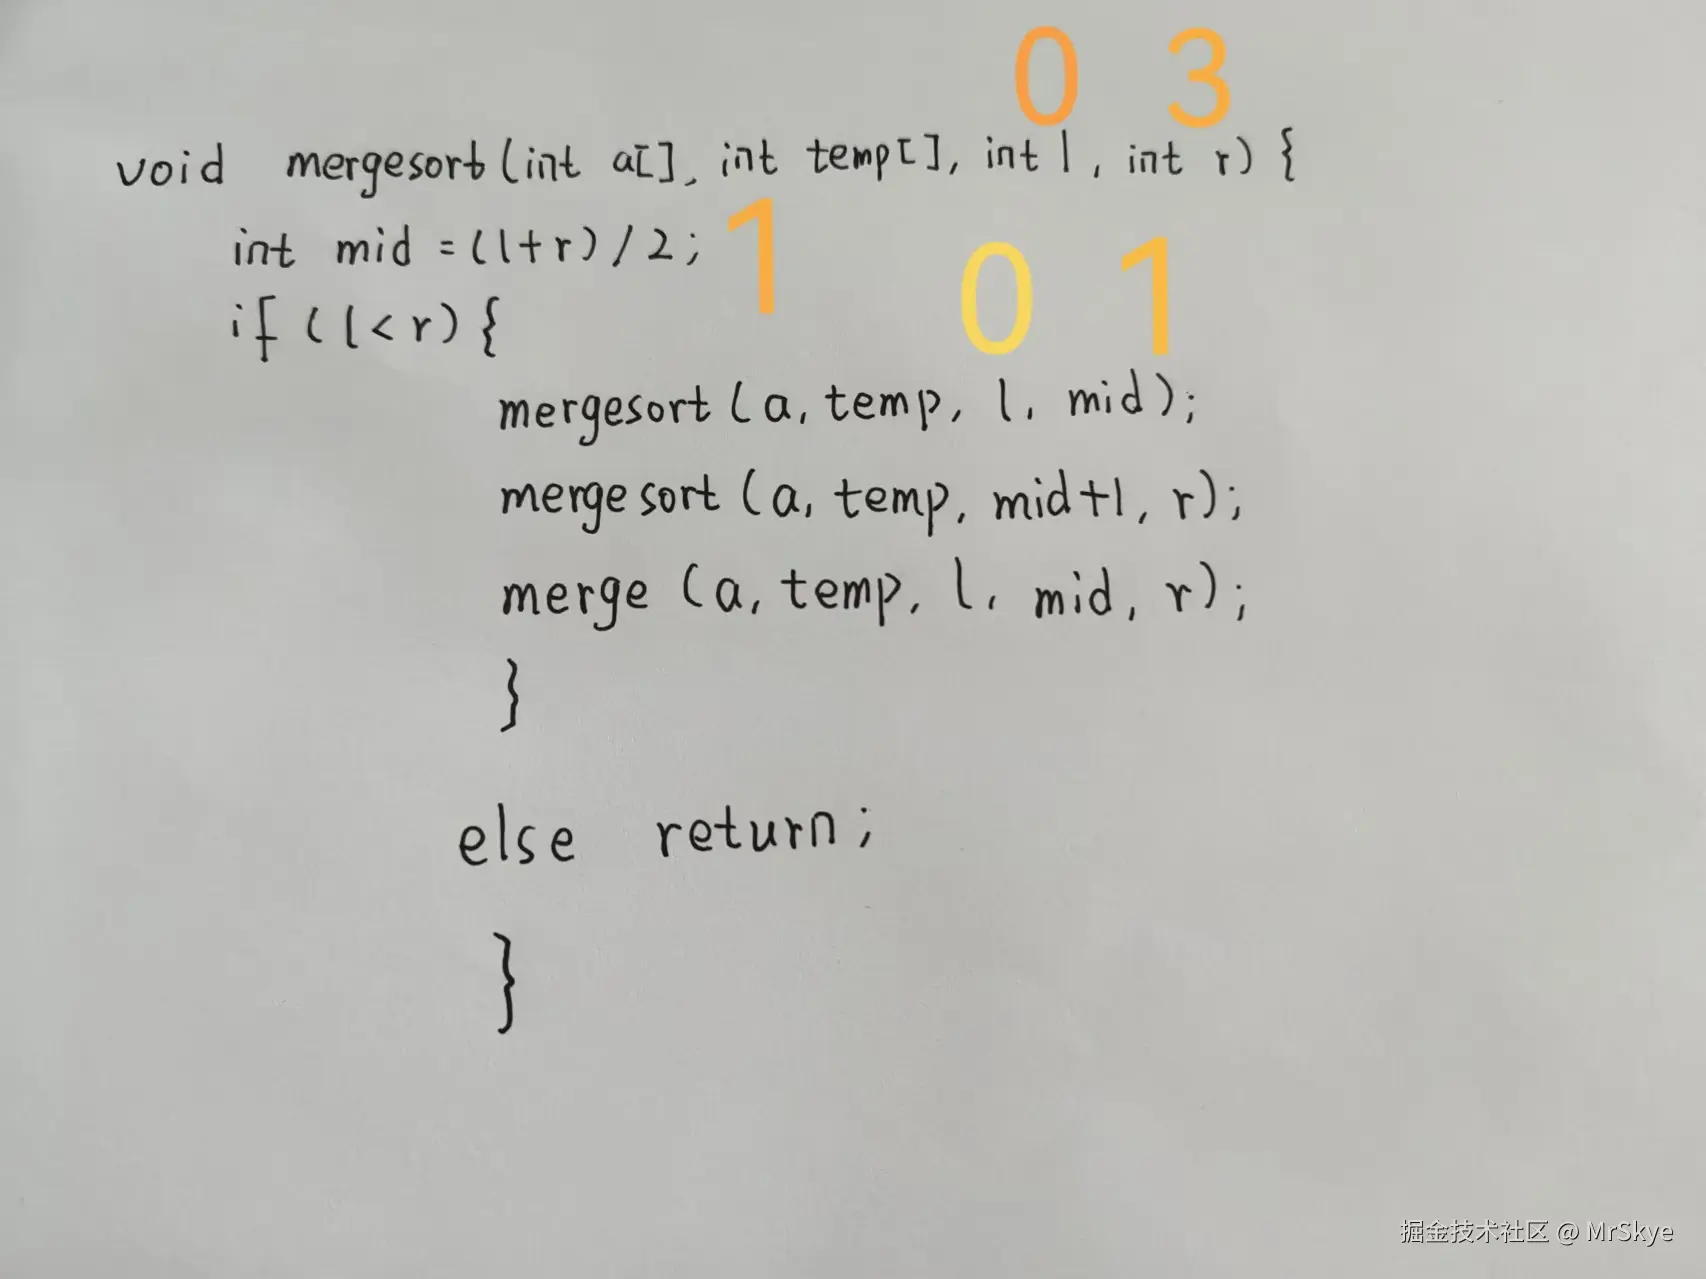 0 3
void mergesort(int a[], int temp[], int l, int r) {
int mid = (l+r)/2; 1
0 1
if (l<r) {
mergesort(a, temp, l, mid);
mergesort(a, temp, mid+1, r);
merge(a, temp, l, mid, r);
}
else return;
}
掘金技术社区 @ MrSkye